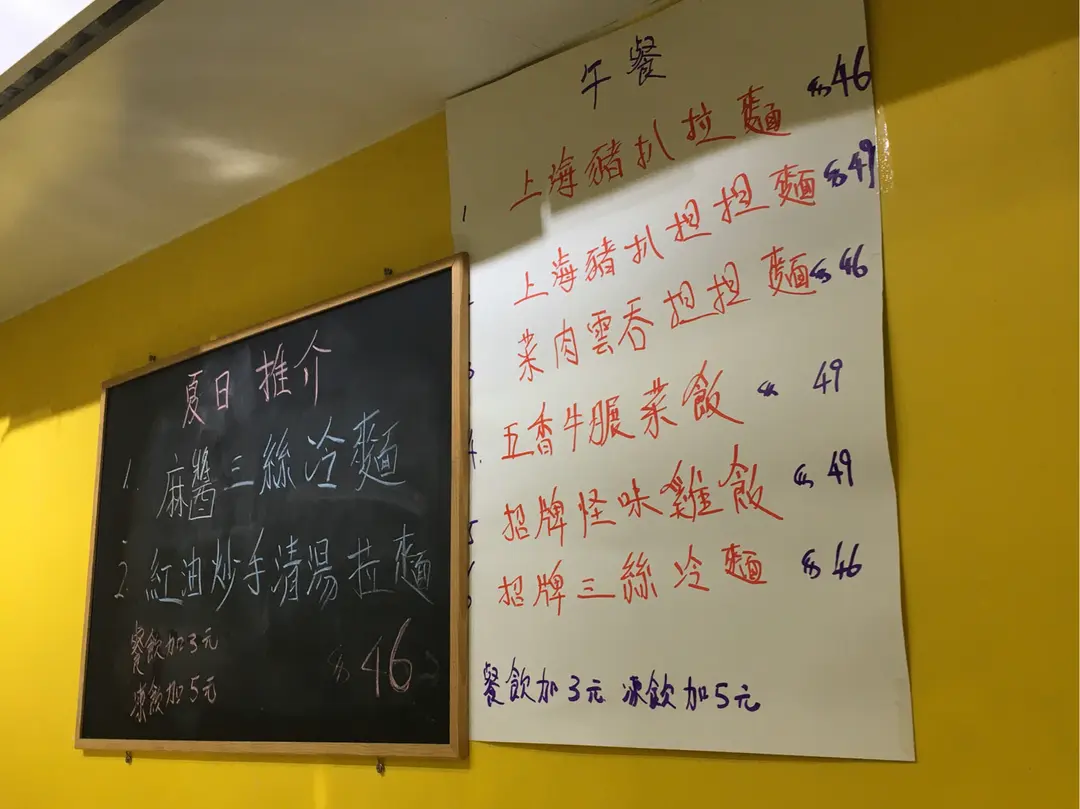 夏日推介
1. 麻醬三絲冷麵
2. 紅油炒手清湯拉麵
餐飲加3元
凍飲加5元
$46
午餐
1 上海豬扒拉麵 $46
上海豬扒担担麵 $49
3 菜肉雲吞担担麵 $46
4. 五香牛腿菜飯 $ 49
5 招牌怪味雞飯 $49
招牌三絲冷麵 $46
餐飲加3元 凍飲加5元